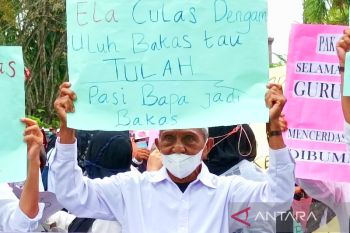 Ela Culas Dengam
Uluh Bakas tau
TULAH
Pasi Bapa jadi
Bakas
PAK
SELAMA
GURU
MENCERDAS
DIBUMI
ANTARA